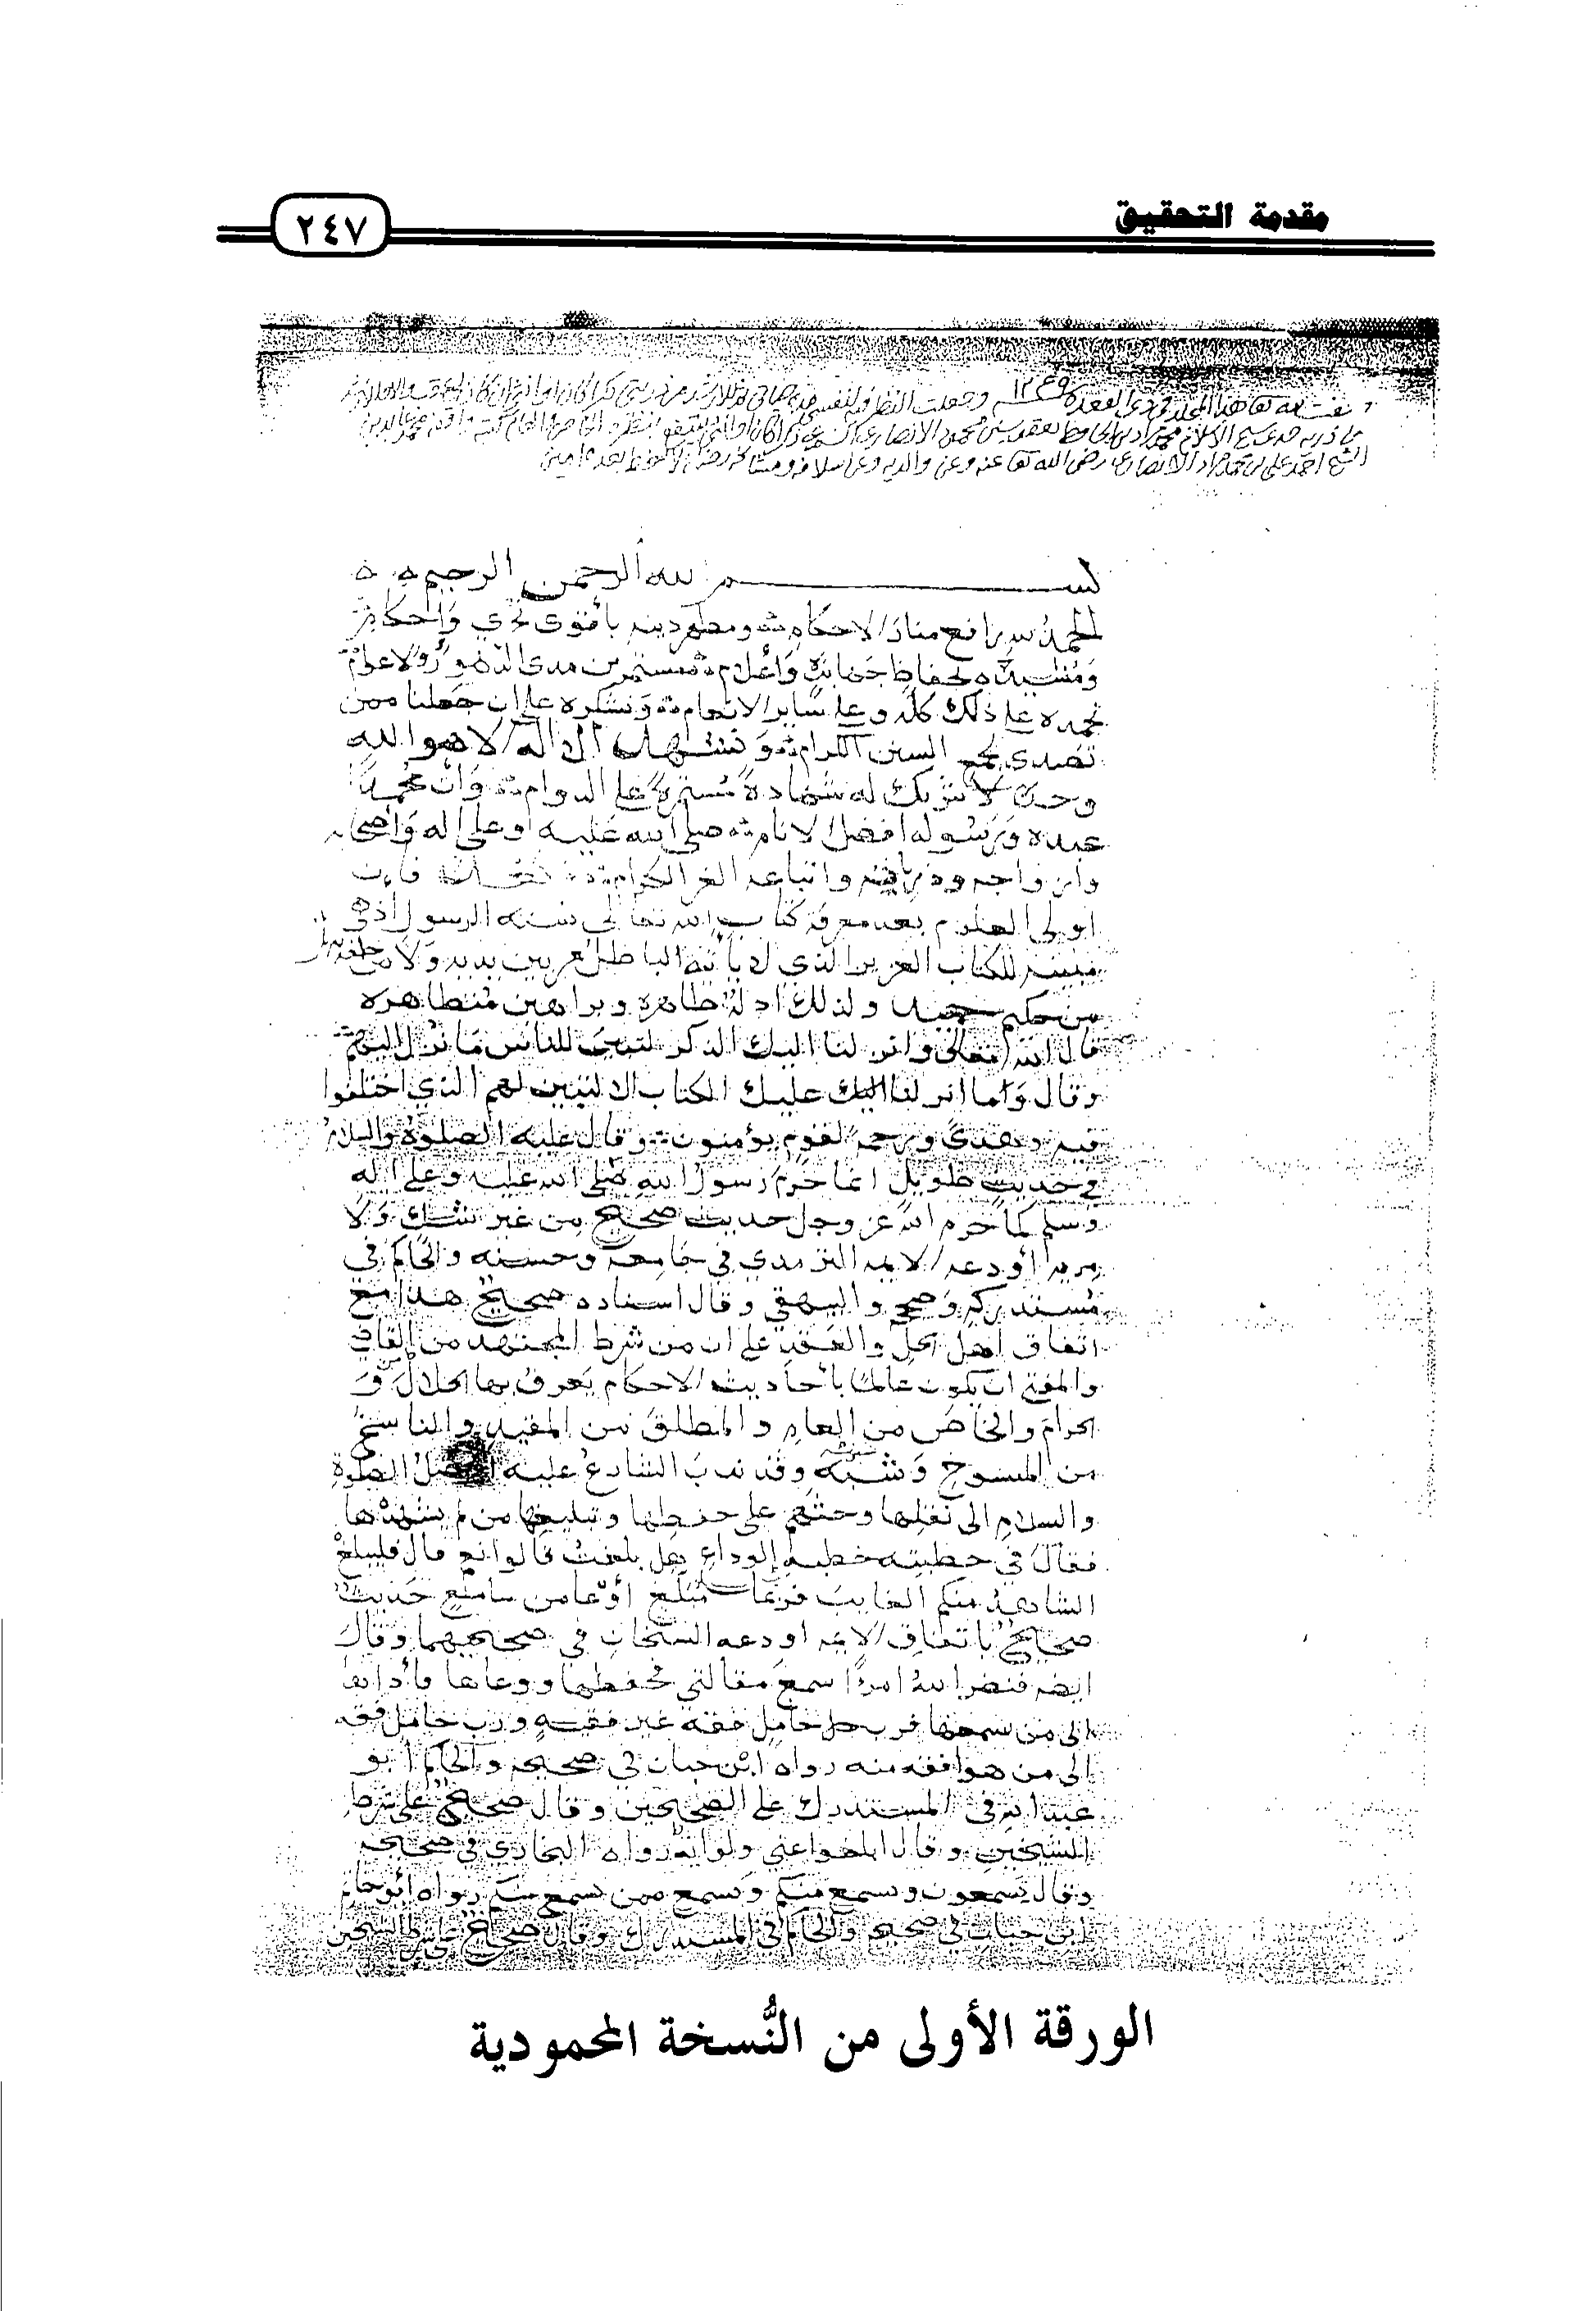 مقدمة التحقيق
٢٤٧
بسم الله الرحمن الرحيم
الحمد لله رافع منار الاحكام ومطهر دينه بأقوى
ومشيده بحفاظ جهابذة وأعلام مستمرين مدى الدهور والاعوام
نحمده على ذلك كله وعلى ساير الانعام ونشكره على ان جعلنا ممن
تصدى لجمع السنن الكرام ونشهد ان لا اله الا هو الله
وحده لا شريك له شهادة مستمرة على الدوام وان محمدا
عبده ورسوله افضل الانام صلى الله عليه وعلى اله واصحابه
وازواجه وذرياته واتباعه الغر الكرام فان
اولى العلوم بعد معرفة كتاب الله تعالى سنة الرسول اذ هي
مبينة للكتاب العزيز الذي لا يأتيه الباطل من بين يديه ولا من خلفه تنزيل
من حكيم حميد ولذلك ادلة ظاهرة وبراهين متظاهرة
قال الله تعالى وانزلنا اليك الذكر لتبين للناس ما نزل اليهم
وقال وما انزلنا عليك الكتاب الا لتبين لهم الذي اختلفوا
فيه وهدى ورحمة لقوم يؤمنون وقال عليه الصلوة والسلام
في حديث طويل انما حرم رسول الله صلى الله عليه وعلى اله
وسلم كما حرم الله عز وجل حديث صحيح من غير شك ولا
مرية أودعه الايمة الترمذي في جامعه وحسنه والحاكم في
مستدركه وصححه والبيهقي وقال اسناده صحيح هذا مع
اتفاق اهل الحل والعقد على ان من شرط المجتهد من القاضي
والمفتي ان يكون عالما بأحاديث الاحكام يعرف بها الحلال و
الحرام والخاص من العام والمطلق من المقيد والناسخ
من المنسوخ وشبهه وقد ندب الشارع عليه افضل الصلوة
والسلام الى نقلها وحثهم على حفظها وتبليغها من لم يشهدها
فقال في خطبته خطبة الوداع هل بلغت قالوا نعم قال فليبلغ
الشاهد منكم الغايب فربما مبلغ أوعا من سامع حديث
صحيح باتفاق الايمة اودعه الشيخان في صحيحيهما وقال
ايضا فنضر الله امرءا سمع مقالتي فحفظها ووعاها فأداها
الى من سمعها فرب حامل فقه غير فقيه ورب حامل فقه
الى من هو افقه منه رواه ابن حبان في صحيحه والحاكم أبو
عبد الله في المستدرك على الصحيحين وقال صحيح على شرط
الشيخين وقال بلغوا عني ولو اية رواه البخاري في صحيحه
وقال تسمعون ويسمع منكم ويسمع ممن يسمع منكم رواه أبو حاتم
ابن حبان في صحيحه والحاكم في المستدرك وقال صحيح على شرط الشيخين
الورقة الأولى من النُّسخة المحمودية